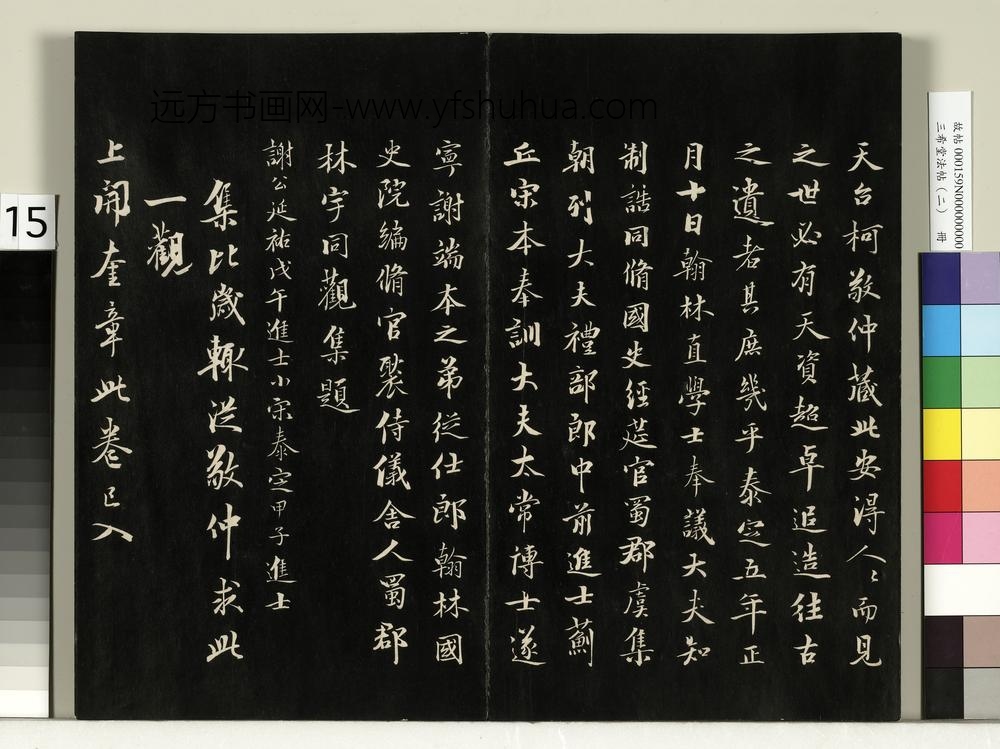 天台柯敬仲藏此安得人〻而見
之世必有天資超卓追造往古
之遺者其庶幾乎泰定五年正
月十日翰林直學士奉議大夫知
制誥同脩國史經筵官蜀郡虞集
朝列大夫禮部郎中前進士薊
丘宋本奉訓大夫太常博士遂
寧謝端本之弟從仕郎翰林國
史院編脩官褧侍儀舍人蜀郡
林宇同觀集題
謝公延祐戊午進士小宋泰定甲子進士
集比歲輒從敬仲求此
一觀
上開奎章此卷已入
故帖000159N000000000
三希堂法帖(二) 冊
15
远方书画网-www.yfshuhua.com